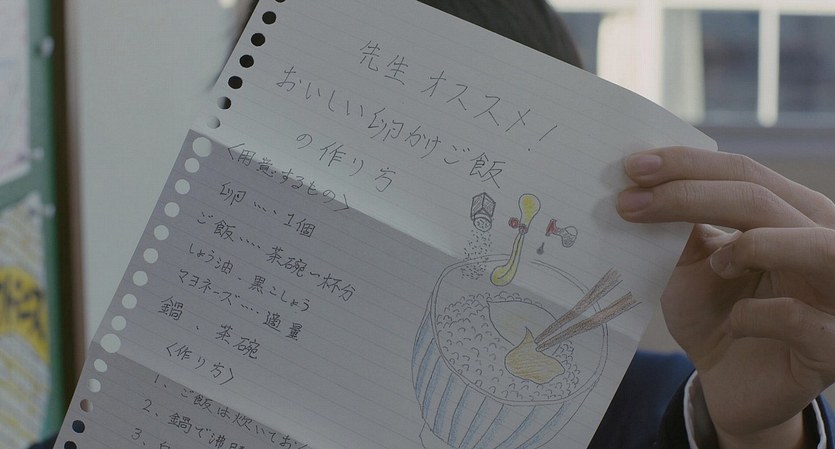 先生 オススメ！
おいしい卵かけご飯
の作り方
〈用意するもの〉
卵‥‥1個
ご飯‥‥茶碗一杯分
しょう油、黒こしょう
マヨネーズ‥‥適量
鍋、茶碗
〈作り方〉
1、ご飯は炊いてお
2、鍋で沸
3、